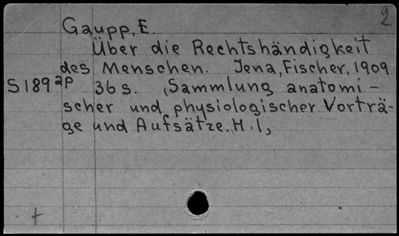 2
Gaupp, E.
Über die Rechtshändigkeit
des Menschen. Jena, Fischer, 1909
S189ap 36 s. (Sammlung anatomi-
scher und physiologischer Vorträ-
ge und Aufsätze. H. 1,